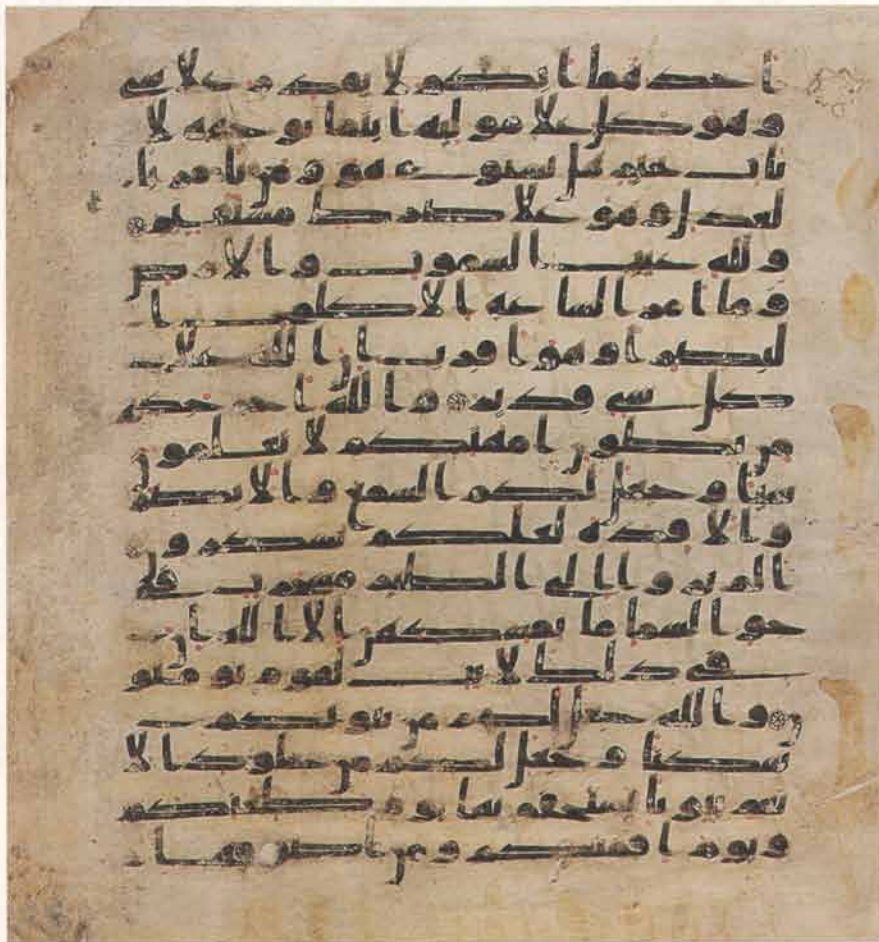 احدهما ابكم لا يقدر على شي
وهو كل على موليه اينما يوجهه لا
يات بخير هل يستوي هو ومن يامر با
لعدل وهو على صرط مستقيم
ولله غيب السموت والارض
وما امر الساعه الا كلمح ا
لبصر او هو اقرب ان الله على
كل شي قدير والله اخرجكم
من بطون امهتكم لا تعلمون
شيا وجعل لكم السمع والابصر
والافدة لعلكم تشكرون
الم يروا الى الطير مسخرت في
جو السما ما يمسكهن الا الله ان
في ذلك لايت لقوم يومنو
ن والله جعل لكم من بيوتكم
سكنا وجعل لكم من جلود الا
نعم بيوتا تستخفونها يوم ظعنكم
ويوم اقمتكم ومن اصوافها